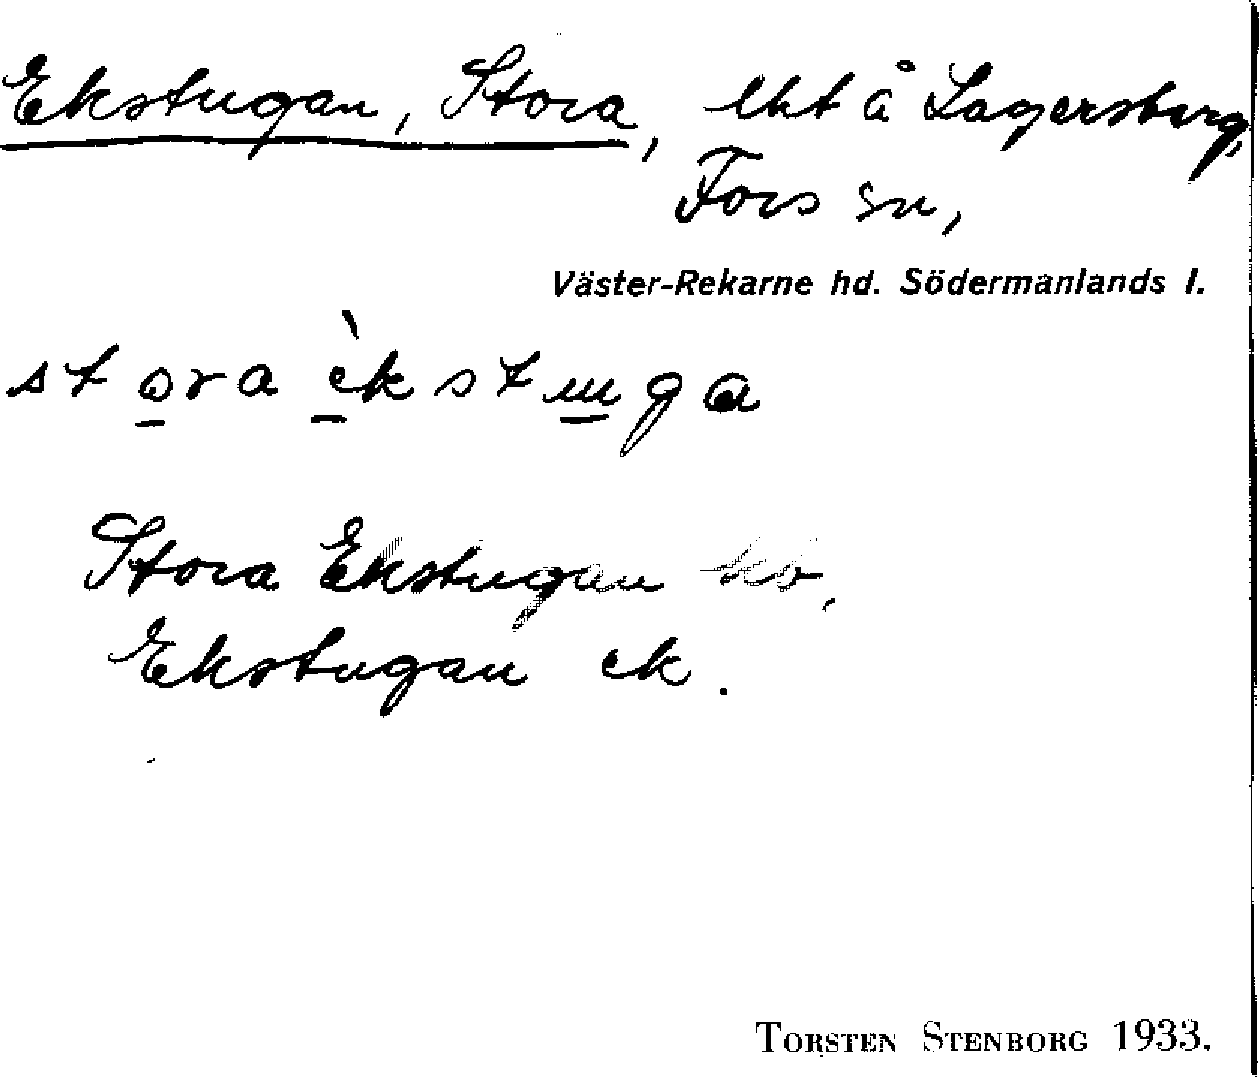 Ekstugan, Stora, lht å Lagersberg,
Fors sn,
Väster-Rekarne hd. Södermanlands l.
stora èkstuga
Stora Ekstugan kb,
Ekstugan ek.
TORSTEN STENBORG 1933.